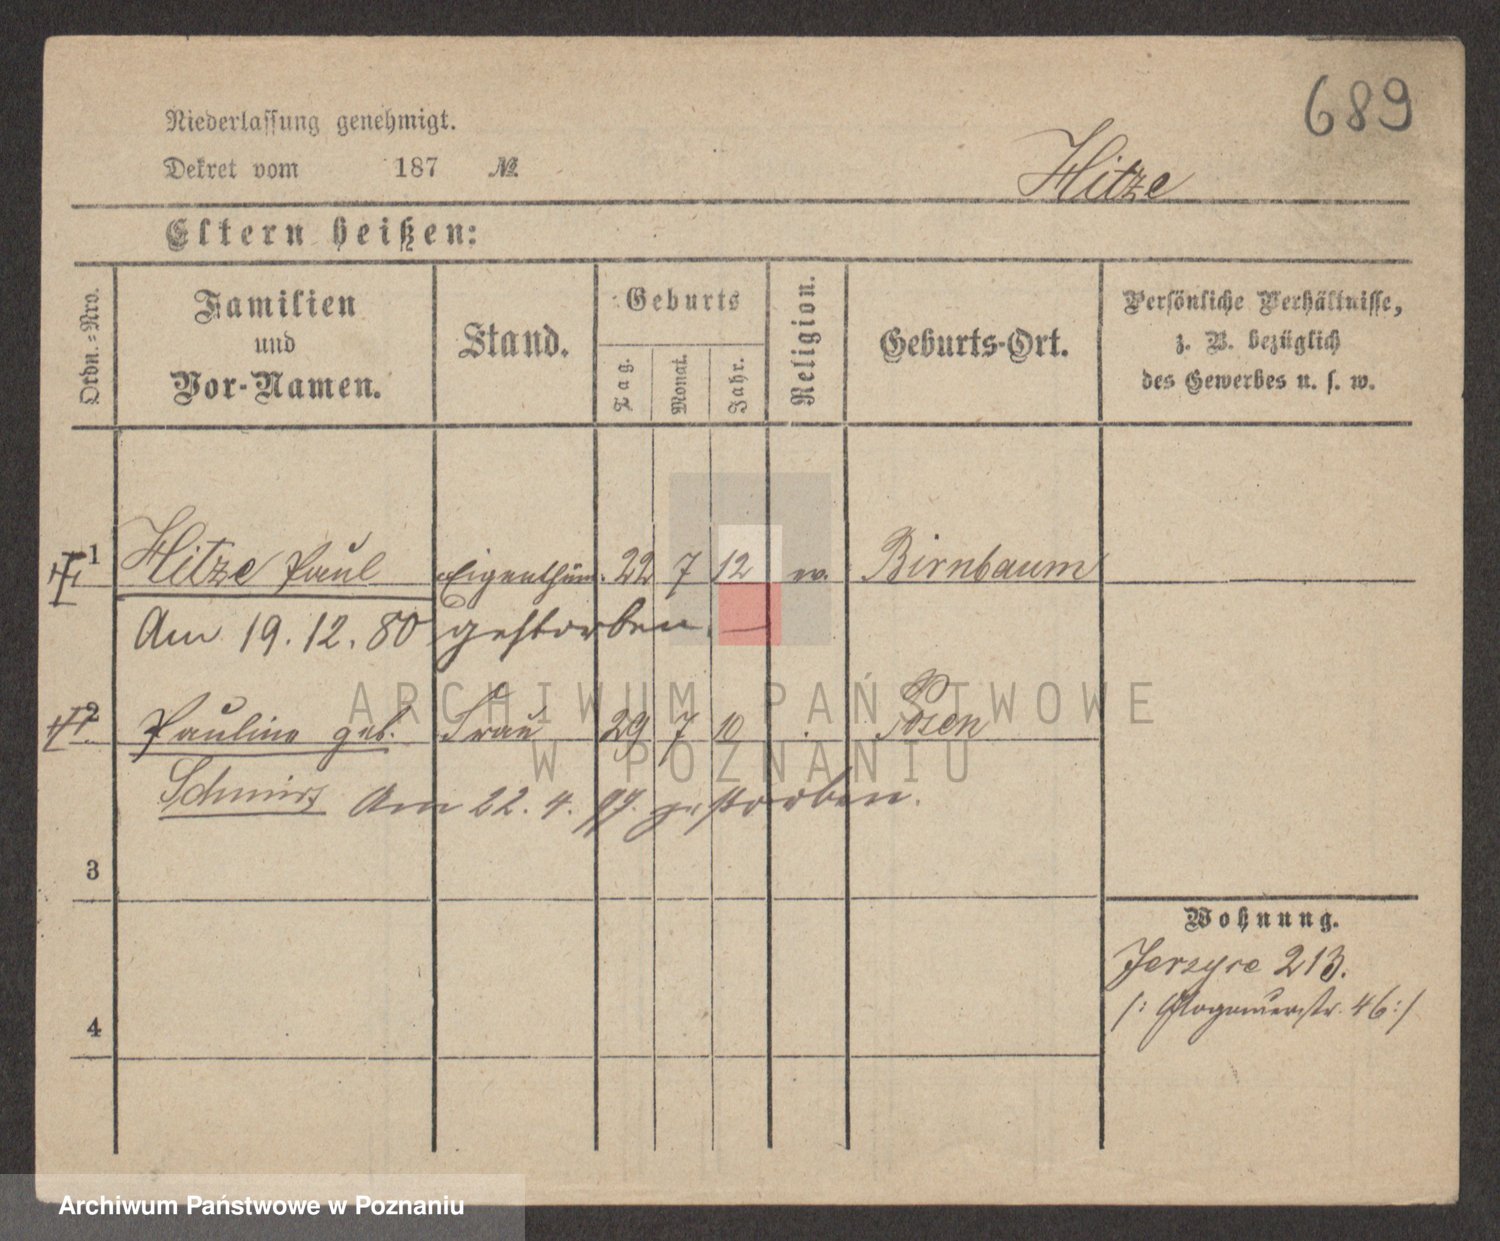 689
Niederlassung genehmigt.
Dekret vom 187 №
Hitze
Eltern heißen:
Ordn.=Nro.
Familien und Vor-Namen.
Stand.
Geburts
Tag.
Monat.
Jahr.
Religion.
Geburts-Ort.
Persönliche Verhältnisse,
z. B. bezüglich
des Gewerbes u. s. w.
1 Hitze Paul Eigenthüm. 22 7 12 ev. Birnbaum
Am 19. 12. 80 gestorben.
2 Pauline geb. Frau 29 7 10 Posen
Am 22. 4. gestorben.
3
4
Wohnung.
Jerzyce 213.
/: Glogauerstr. 46 :/
ARCHIWUM PAŃSTWOWE
W POZNANIU
Archiwum Państwowe w Poznaniu